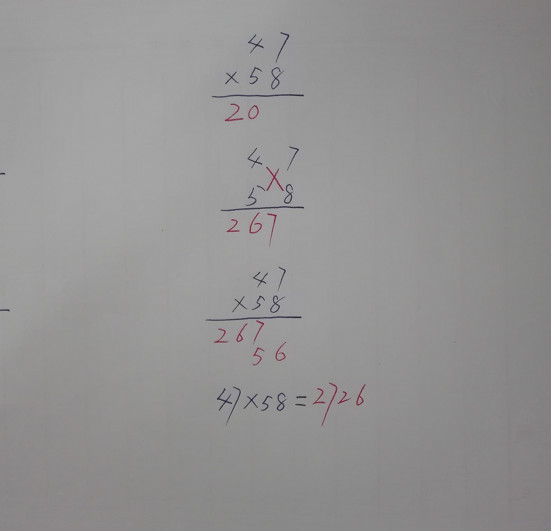 47
×58
20
4 7
5 8
267
47
×58
267
56
47×58=2726